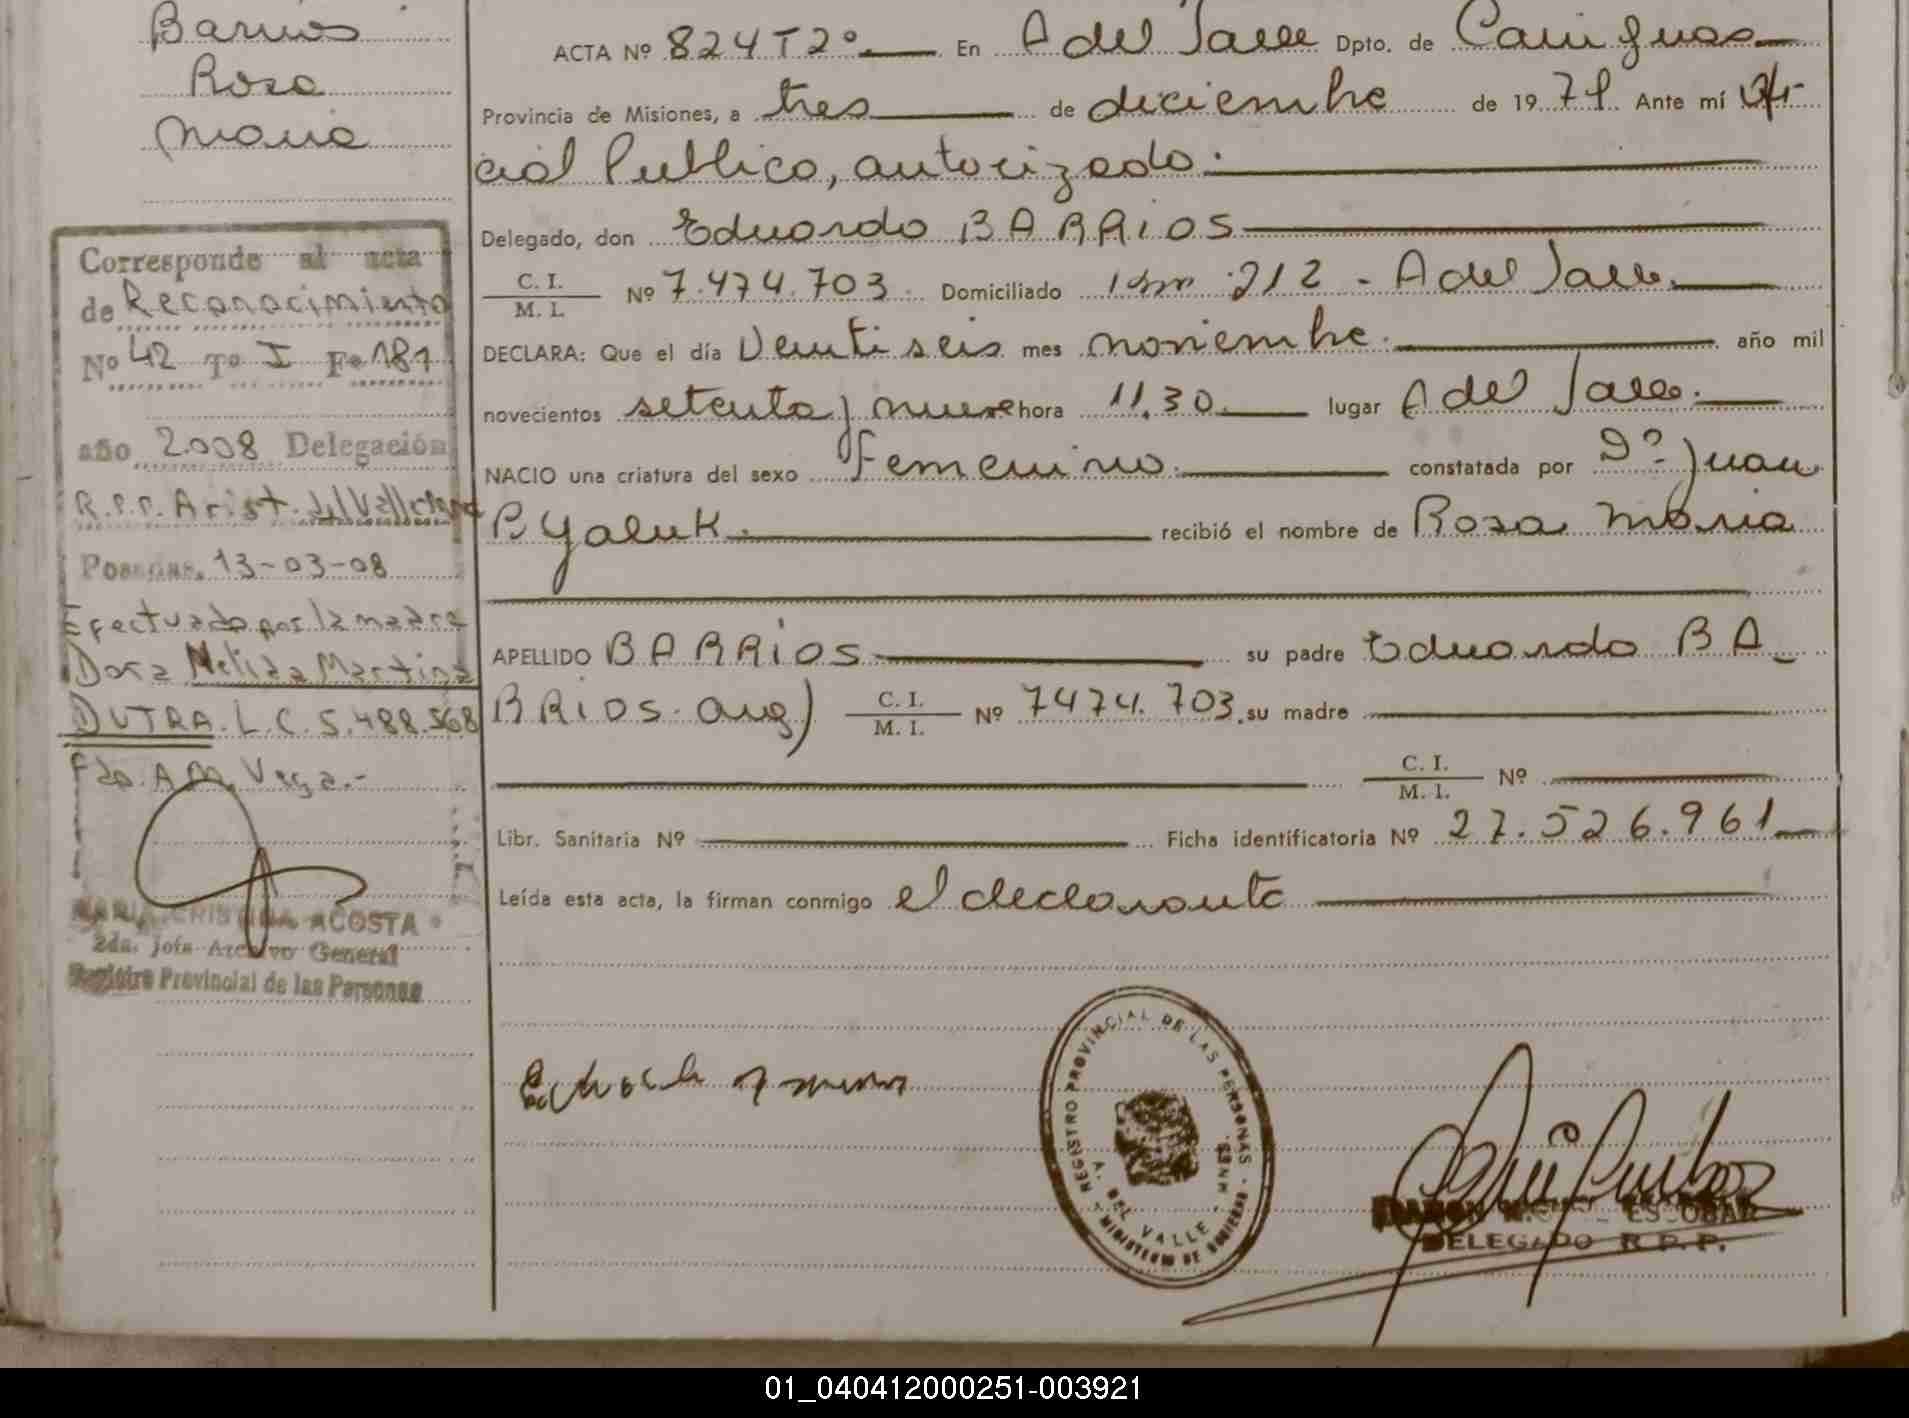 Barrios
Rosa
Maria
Corresponde al acta
de Reconocimiento
Nº 42 Tº I Fº 181
año 2008 Delegación
R.P.P. Arist. del Valle
Posadas, 13-03-08
Efectuado por la madre
Dora Nelida Martina
DUTRA. L.C. 5.488.568
Fdo. A.M. Vega.-
MARIA CRISTINA ACOSTA
2da. Jefa Archivo General
Registro Provincial de las Personas
ACTA Nº 824 T 2º En A del Valle Dpto. de Cainguas
Provincia de Misiones, a tres de diciembre de 1979 Ante mí Ofi-
cial Publico, autorizado.
Delegado, don Eduardo BARRIOS
C. I.
M. I. Nº 7.474.703 Domiciliado Km 212 - A del Valle.
DECLARA: Que el día Veinti seis mes noviembre. año mil
novecientos setenta y nueve hora 11.30 lugar A del Valle.
NACIO una criatura del sexo Femenino. constatada por Dº Juan
P. Yaluk. recibió el nombre de Rosa Maria
APELLIDO BARRIOS su padre Eduardo BA-
RRIOS. arg) C. I.
M. I. Nº 7474.703. su madre
C. I.
M. I. Nº
Libr. Sanitaria Nº Ficha identificatoria Nº 27.526.961
Leída esta acta, la firman conmigo el declarante
REGISTRO PROVINCIAL DE LAS PERSONAS
A. DEL VALLE - MNES.
MINISTERIO DE GOBIERNO
RAMON ESCOBAR
DELEGADO R.P.P.
01_040412000251-003921